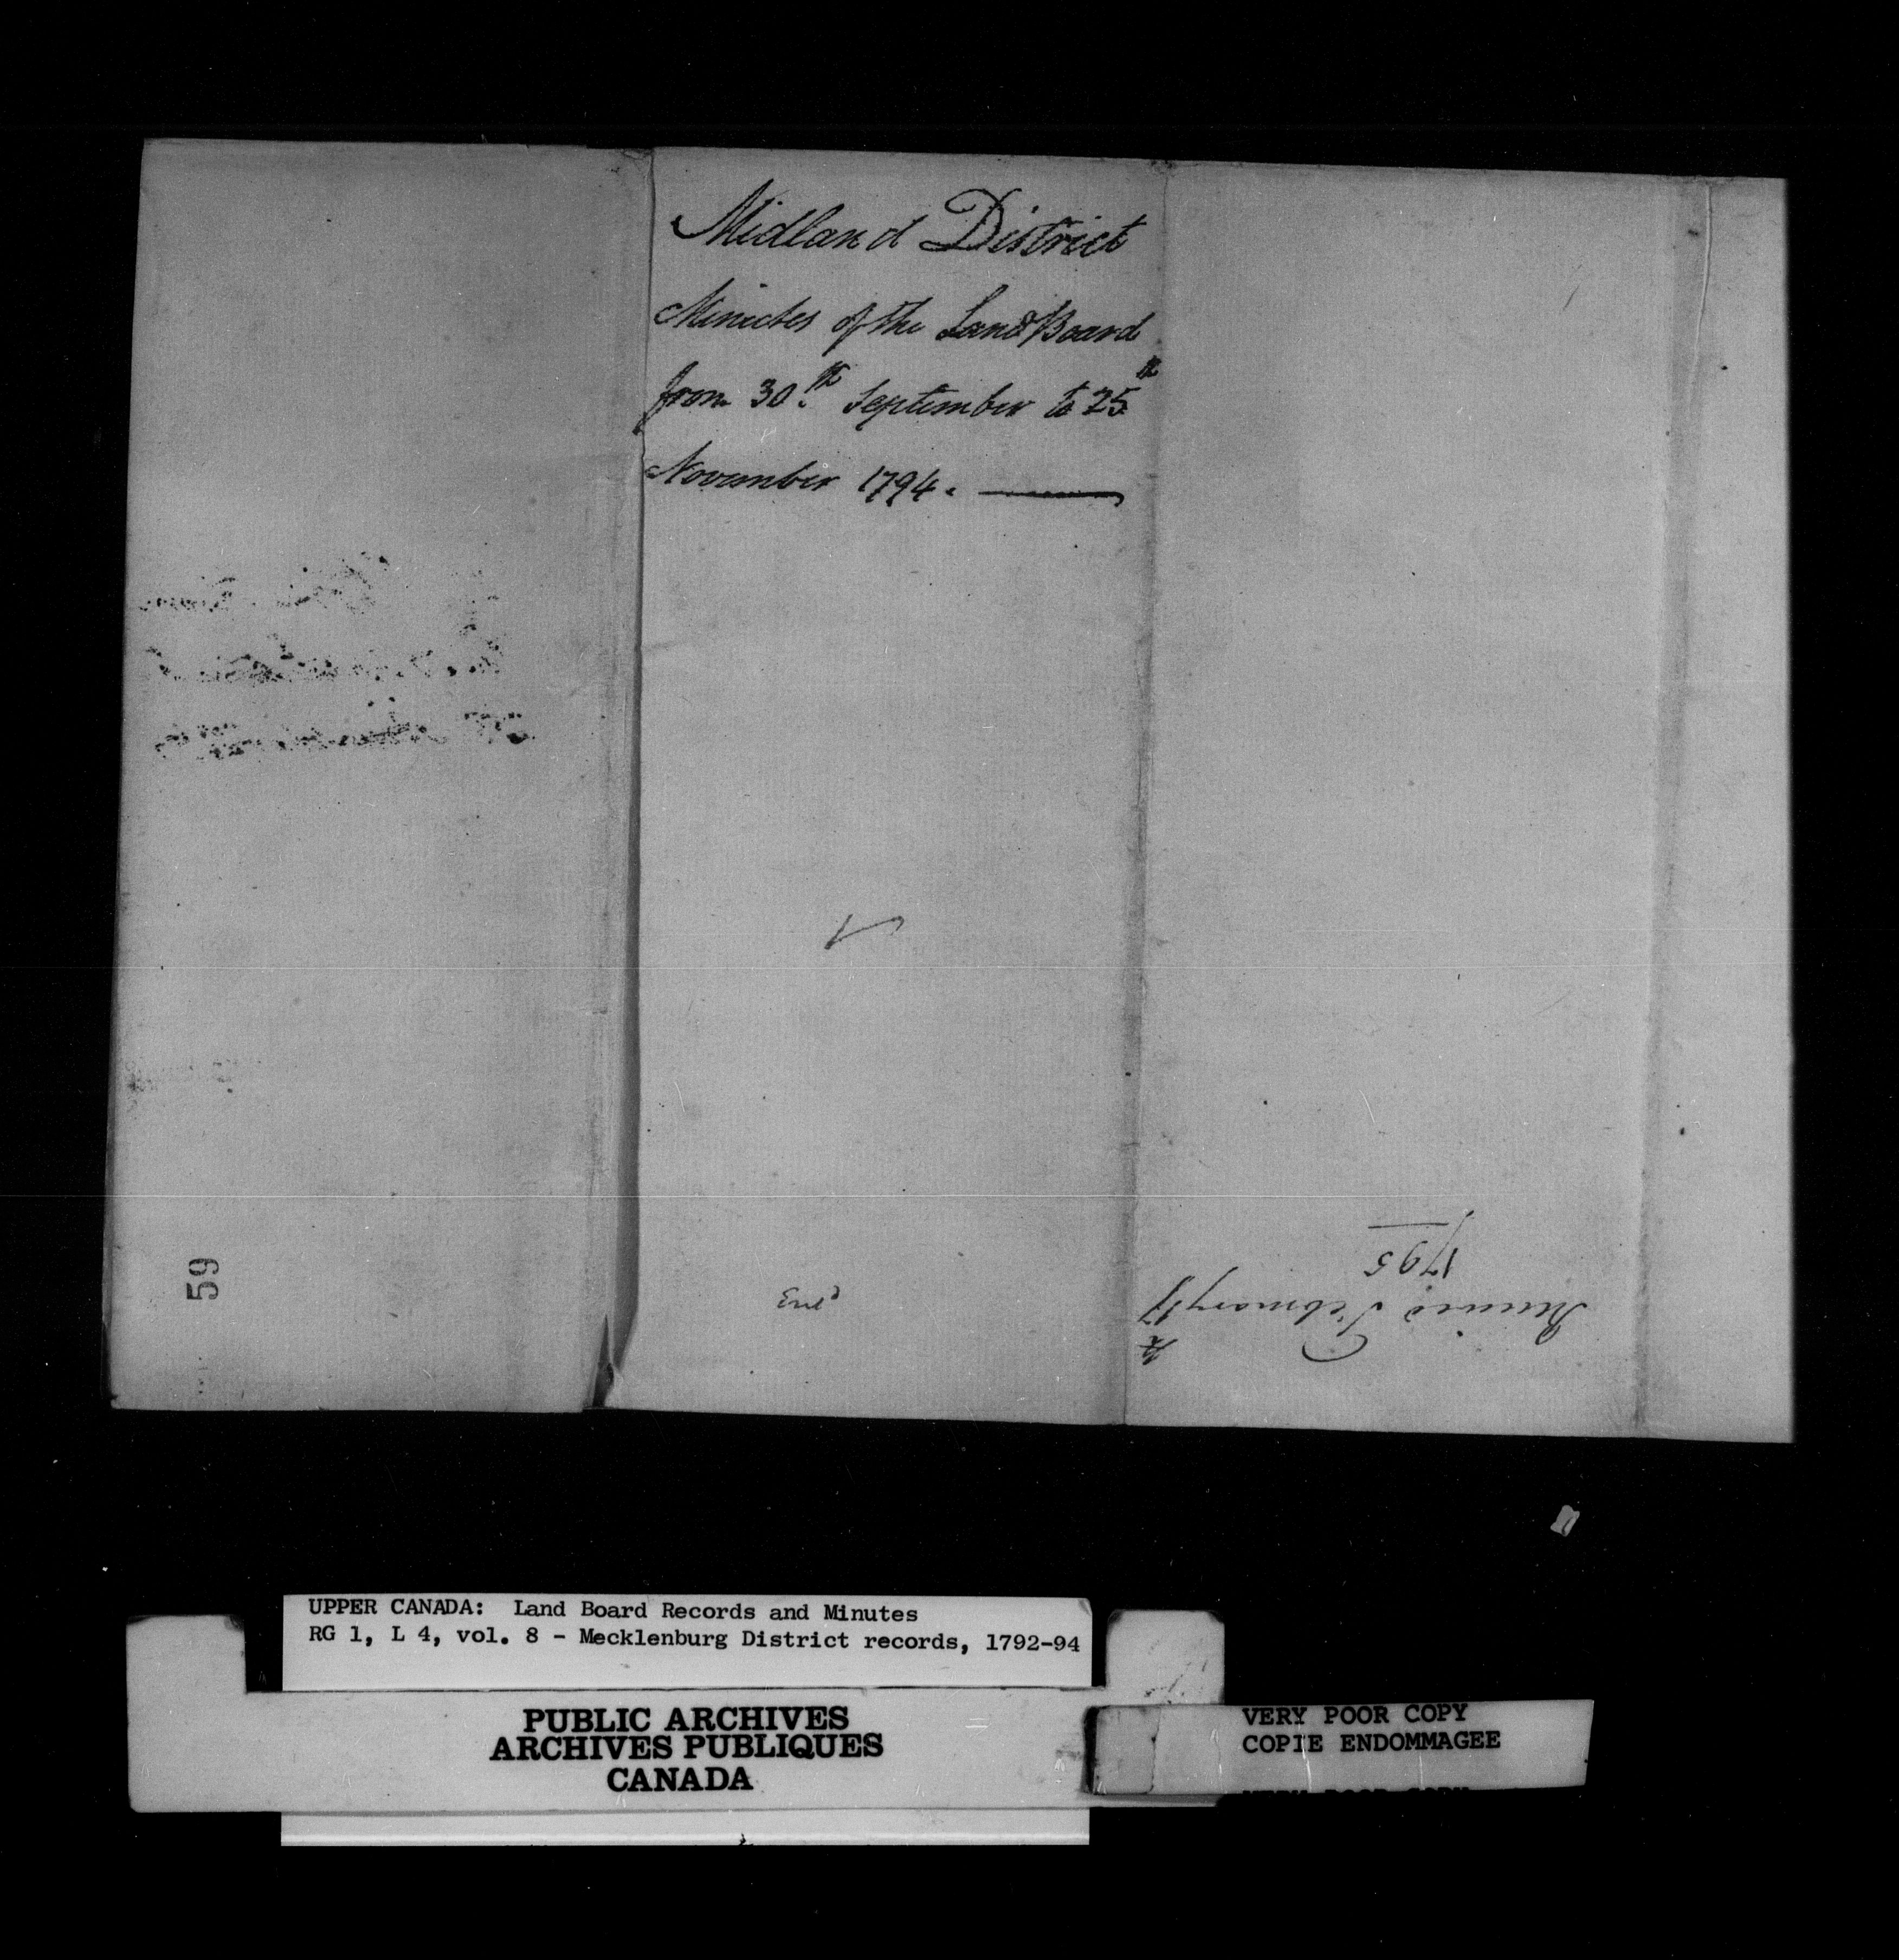 Midland District
Minutes of the Land Board
from 30th September to 25th
November 1794.
Ent'd
Received February 17th
1795
59
UPPER CANADA: Land Board Records and Minutes
RG 1, L 4, vol. 8 - Mecklenburg District records, 1792-94
PUBLIC ARCHIVES
ARCHIVES PUBLIQUES
CANADA
VERY POOR COPY
COPIE ENDOMMAGEE
VERY POOR COPY